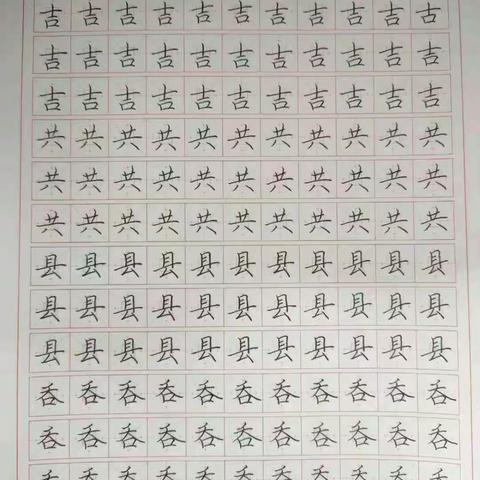 吉吉吉吉吉吉吉吉吉吉古
吉吉吉吉吉吉吉吉吉吉吉
吉吉吉吉吉吉吉吉吉吉吉
共共共共共共共共共共共
共共共共共共共共共共共
共共共共共共共共共共共
县县县县县县县县县县县
县县县县县县县县县县县
县县县县县县县县县县县
吞吞吞吞吞吞吞吞吞吞吞
吞吞吞吞吞吞吞吞吞吞吞
吞吞吞吞吞吞吞吞吞吞吞